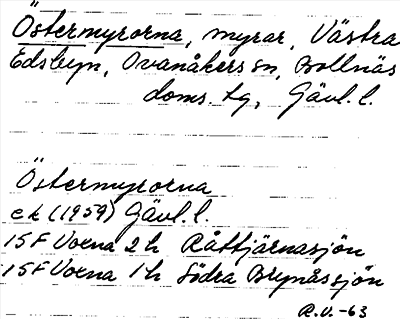 Östermyrorna, myrar, Västra
Edsbyn, Ovanåkers sn, Bollnäs
doms. tg, Gävl. l.
Östermyrorna
ek (1959) Gävl. l.
15F Voxna 2h Råttjärnasjön
15F Voxna 1h Södra Brynåssjön
R.V. -63